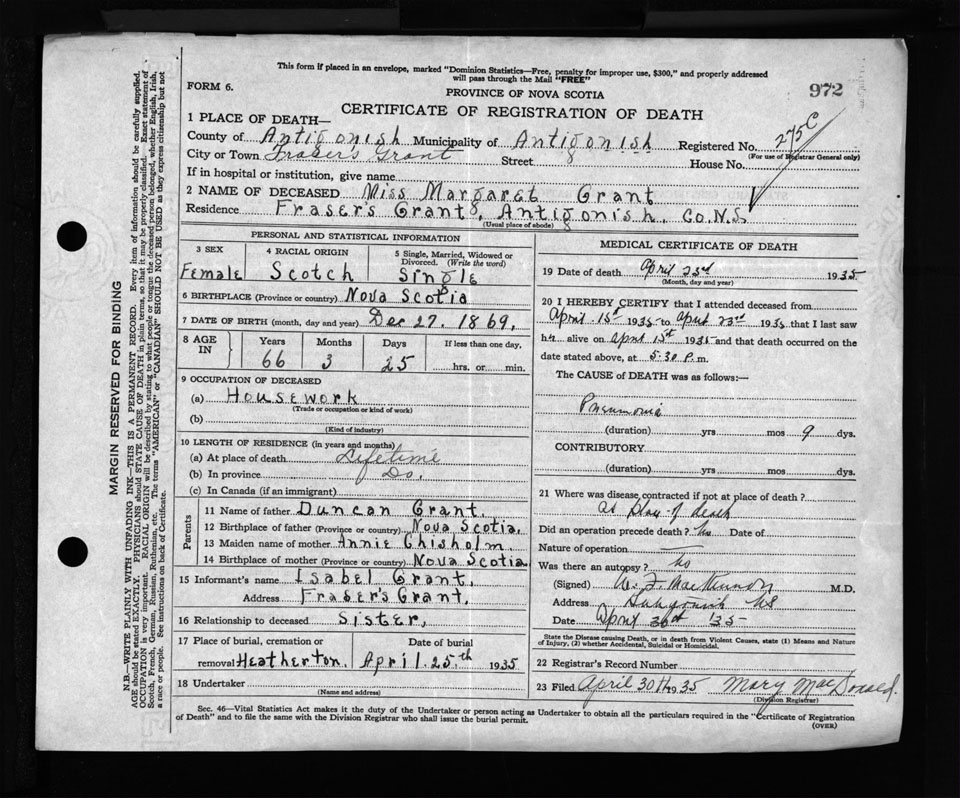 This form if placed in an envelope, marked "Dominion Statistics—Free, penalty for improper use, $300," and properly addressed
will pass through the Mail "FREE"
FORM 6.
PROVINCE OF NOVA SCOTIA
972
CERTIFICATE OF REGISTRATION OF DEATH
1 PLACE OF DEATH—
County of Antigonish Municipality of Antigonish Registered No. 275C
(For use of Registrar General only)
City or Town Fraser's Grant Street House No.
If in hospital or institution, give name
2 NAME OF DECEASED Miss Margaret Grant
Residence Fraser's Grant, Antigonish, Co. N.S
(Usual place of abode)
PERSONAL AND STATISTICAL INFORMATION
3 SEX 4 RACIAL ORIGIN 5 Single, Married, Widowed or
Divorced. (Write the word)
Female Scotch Single
6 BIRTHPLACE (Province or country) Nova Scotia
7 DATE OF BIRTH (month, day and year) Dec 27. 1869.
8 AGE IN Years Months Days If less than one day,
66 3 25 hrs. or min.
9 OCCUPATION OF DECEASED
(a) Housework
(Trade or occupation or kind of work)
(b)
(Kind of industry)
10 LENGTH OF RESIDENCE (in years and months)
(a) At place of death Lifetime
(b) In province Do.
(c) In Canada (if an immigrant)
Parents
11 Name of father Duncan Grant.
12 Birthplace of father (Province or country) Nova Scotia.
13 Maiden name of mother Annie Chisholm
14 Birthplace of mother (Province or country) Nova Scotia
15 Informant's name Isabel Grant,
Address Fraser's Grant.
16 Relationship to deceased Sister,
17 Place of burial, cremation or Date of burial
removal Heatherton. April. 25.th 1935
18 Undertaker
(Name and address)
MEDICAL CERTIFICATE OF DEATH
19 Date of death April 23rd 1935
(Month, day and year)
20 I HEREBY CERTIFY that I attended deceased from
April 15th 1935 to April 23rd 1935 that I last saw
her alive on April 15th 1935 and that death occurred on the
date stated above, at 5-30 P. m.
The CAUSE OF DEATH was as follows:—
Pneumonia
(duration) yrs mos 9 dys.
CONTRIBUTORY
(duration) yrs. mos. dys.
21 Where was disease contracted if not at place of death?
at place of death
Did an operation precede death? No Date of
Nature of operation
Was there an autopsy? No
(Signed) W. F. M.D.
Address Antigonish NS
Date April 30th '35
State the Disease causing Death, or in death from Violent Causes, state (1) Means and Nature
of Injury, (2) whether Accidental, Suicidal or Homicidal.
22 Registrar's Record Number
23 Filed April 30th 1935 Mary MacDonald.
(Division Registrar)
Sec. 46—Vital Statistics Act makes it the duty of the Undertaker or person acting as Undertaker to obtain all the particulars required in the "Certificate of Registration
of Death" and to file the same with the Division Registrar who shall issue the burial permit.
(OVER)
MARGIN RESERVED FOR BINDING
N.B.—WRITE PLAINLY WITH UNFADING INK—THIS IS A PERMANENT RECORD. Every item of information should be carefully supplied.
AGE should be stated EXACTLY. PHYSICIANS should STATE CAUSE OF DEATH in plain terms, so that it may be properly classified. Exact statement of
OCCUPATION is very important. RACIAL ORIGIN will be described by stating to what people or tongue the deceased person belonged, whether English, Irish,
Scotch, French, German, Russian, Ruthenian, etc. The terms "AMERICAN" or "CANADIAN" SHOULD NOT BE USED as they express citizenship but not
a race or people. See instructions on back of Certificate.